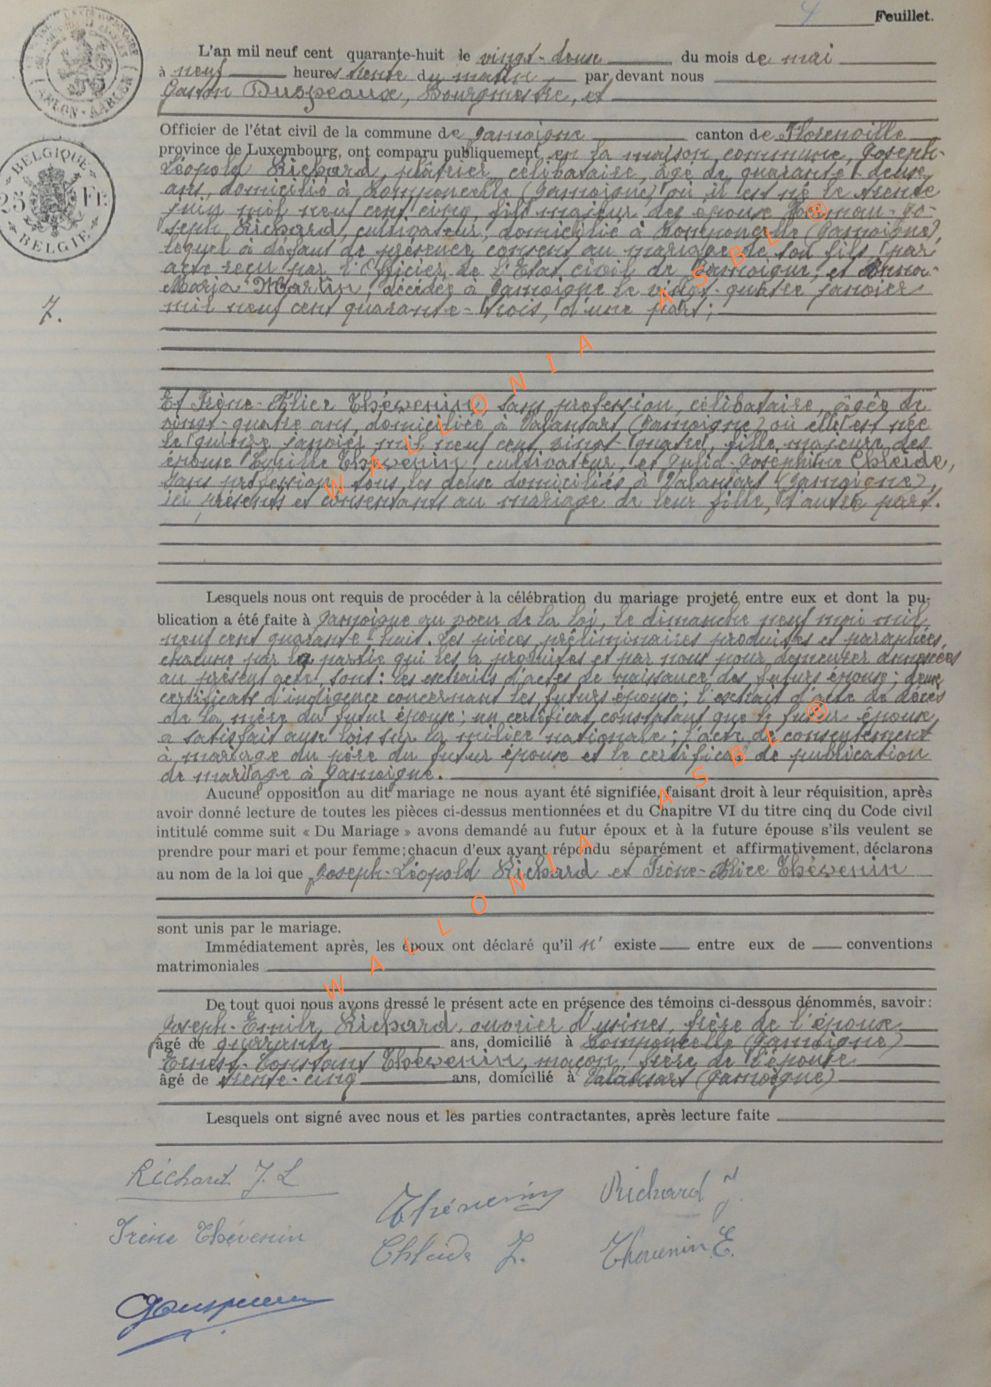 4 Feuillet.
L'an mil neuf cent quarante-huit le vingt-deux du mois de mai
à neuf heures trente du matin par devant nous
Gaston Duspeaux, Bourgmestre, et
Officier de l'état civil de la commune de Jamoigne canton de Florenville
province de Luxembourg, ont comparu publiquement en la maison commune, Joseph-
Léopold Richard, plâtrier, célibataire, âgé de quarante-deux
ans, domicilié à Romponcelle (Jamoigne) où il est né le trente
juin mil neuf cent cinq, fils majeur des époux Jo-
seph Richard, cultivateur, domicilié à Romponcelle (Jamoigne)
lequel à défaut de présence consent au mariage de son fils par
acte reçu par l'Officier de l'Etat civil de Jamoigne, et Anna-
Maria Martin, décédée à Jamoigne le vingt-quatre janvier
mil neuf cent quarante-trois, d'une part;
7.
Et Irène-Alice Thévenin, sans profession, célibataire, âgée de
vingt-quatre ans, domiciliée à Valansart (Jamoigne) où elle est née
le quinze janvier mil neuf cent vingt-quatre, fille majeure des
époux Thévenin, cultivateur, et Joséphine Chleide,
sans profession, tous les deux domiciliés à Valansart (Jamoigne),
ici présents et consentants au mariage de leur fille, d'autre part.
Lesquels nous ont requis de procéder à la célébration du mariage projeté entre eux et dont la pu-
blication a été faite à Jamoigne au voeu de la loi, le dimanche neuf mai mil
neuf cent quarante-huit. Les pièces préliminaires produites et paraphées,
chacune par la partie qui les a produites et par nous pour demeurer annexées
au présent acte sont: les extraits d'actes de naissance des futurs époux; deux
certificats d'indigence concernant les futurs époux; l'extrait d'acte de décès
de la mère du futur époux; un certificat constatant que le futur époux
a satisfait aux lois sur la milice nationale; l'acte de consentement
à mariage du père du futur époux et le certificat de publication
de mariage à Jamoigne.
Aucune opposition au dit mariage ne nous ayant été signifiée, faisant droit à leur réquisition, après
avoir donné lecture de toutes les pièces ci-dessus mentionnées et du Chapitre VI du titre cinq du Code civil
intitulé comme suit « Du Mariage » avons demandé au futur époux et à la future épouse s'ils veulent se
prendre pour mari et pour femme; chacun d'eux ayant répondu séparément et affirmativement, déclarons
au nom de la loi que Joseph-Léopold Richard et Irène-Alice Thévenin
sont unis par le mariage.
Immédiatement après, les époux ont déclaré qu'il n' existe entre eux de conventions
matrimoniales
De tout quoi nous avons dressé le présent acte en présence des témoins ci-dessous dénommés, savoir:
Joseph-Emile Richard, ouvrier d'usines, frère de l'époux
âgé de quarante ans, domicilié à Romponcelle (Jamoigne)
Ernest-Constant Thévenin, maçon, frère de l'épouse
âgé de trente-cinq ans, domicilié à Valansart (Jamoigne)
Lesquels ont signé avec nous et les parties contractantes, après lecture faite
Richard J. L
Thévenin
Richard J.
Irène Thévenin
Chleide J.
Thevenin E.
BELGIQUE
25 Fr.
BELGIE
ARLON - AARLEN
WALLONIA ASBL ®
WALLONIA ASBL ®